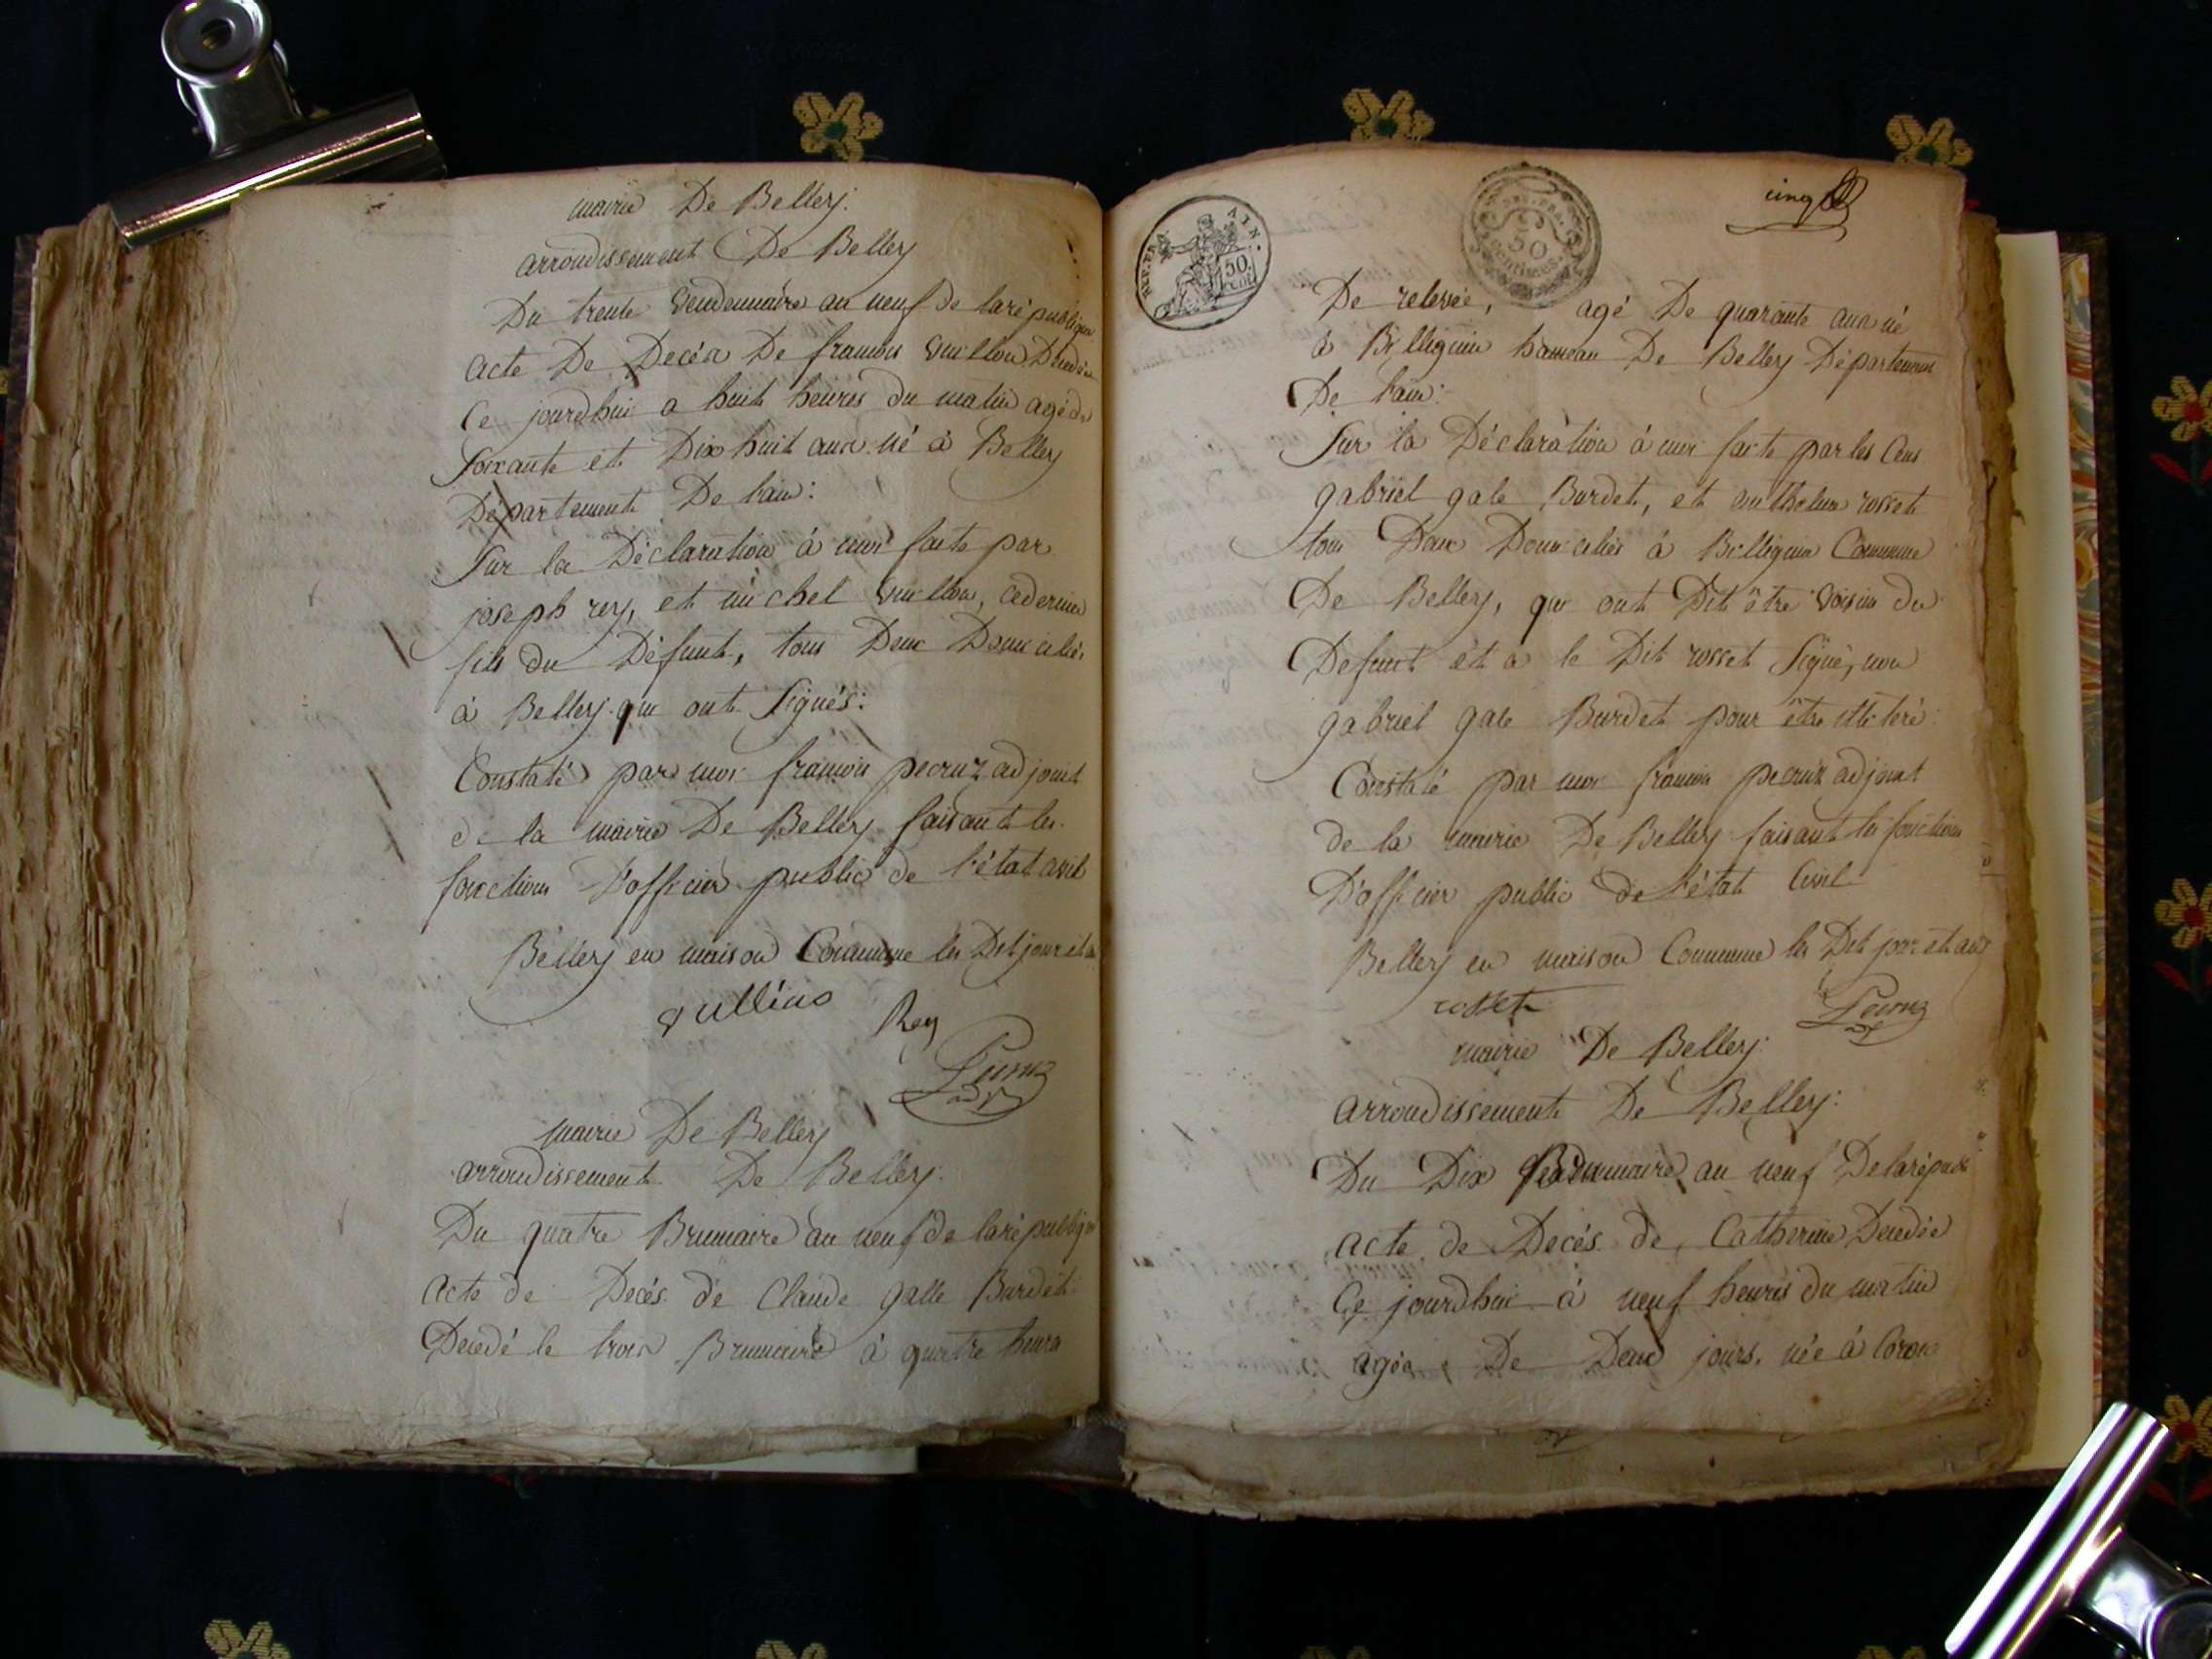 mairie De Belley.
arrondissement De Belley
Du trente Vendemiaire an neuf de la république
acte De Decés De françois Vuillon Decedé
Ce jourdhui a huit heures du matin agé de
Soixante et Dix huit ans né à Belley
Département De l'ain:
Sur la Déclaration à moi faite par
joseph rey, et michel Vuillon, ce dernier
fils du Défunt, tous Deux Domiciliés
à Belley qui ont Signés:
Constaté par moi françois pecruz adjoint
de la mairie De Belley faisant les
fonctions D'officier public de l'état civil
Belley en maison Commune les Dit jour et an
Rey
mairie De Belley
arrondissement De Belley.
Du quatre Brumaire an neuf de la république
Acte de Decés de Claude galle Burdet
Decedé le trois Brumaire à quatre heures
AIN.
50
REP. FRA.
50
centimes.
cinq
De relevée, agé De quarante ans né
à Billignin hameau De Belley Département
De l'ain:
Sur la Déclaration à moi faite par les Cens
gabriel gale Burdet, et anthelme rosset
tous Deux Domiciliés à Billignin Commune
De Belley, qui ont Dit être Voisin du
Defunt et a le Dit rosset Signé, non
gabriel gale Burdet pour être illiteré
Constaté par moi françois pecruz adjoint
de la mairie De Belley faisant les fonctions
D'officier public de l'état Civil
Belley en maison Commune les Dit jour et an
rosset
mairie De Belley:
arrondissement De Belley:
Du Dix Brumaire an neuf De la répub
acte de Decés de Catherine Decedée
Ce jourdhui à neuf heures du matin
agée De Deux jours. née à